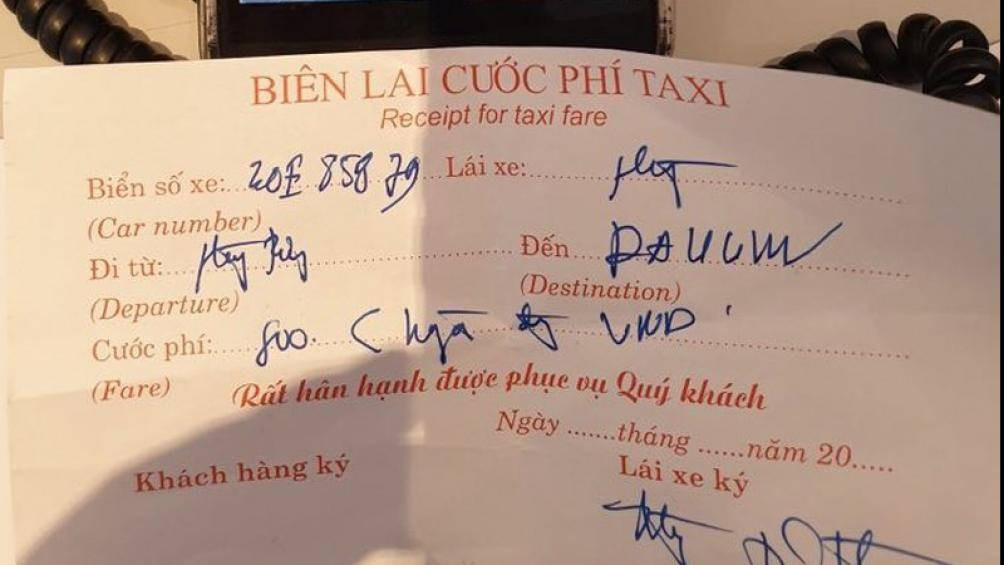 BIÊN LAI CƯỚC PHÍ TAXI
Receipt for taxi fare
Biển số xe: 20E 858 79 Lái xe:
(Car number)
Đi từ: Đến
(Departure) (Destination)
Cước phí: 800. ( VND
(Fare)
Rất hân hạnh được phục vụ Quý khách
Ngày .......tháng ......năm 20.....
Khách hàng ký Lái xe ký